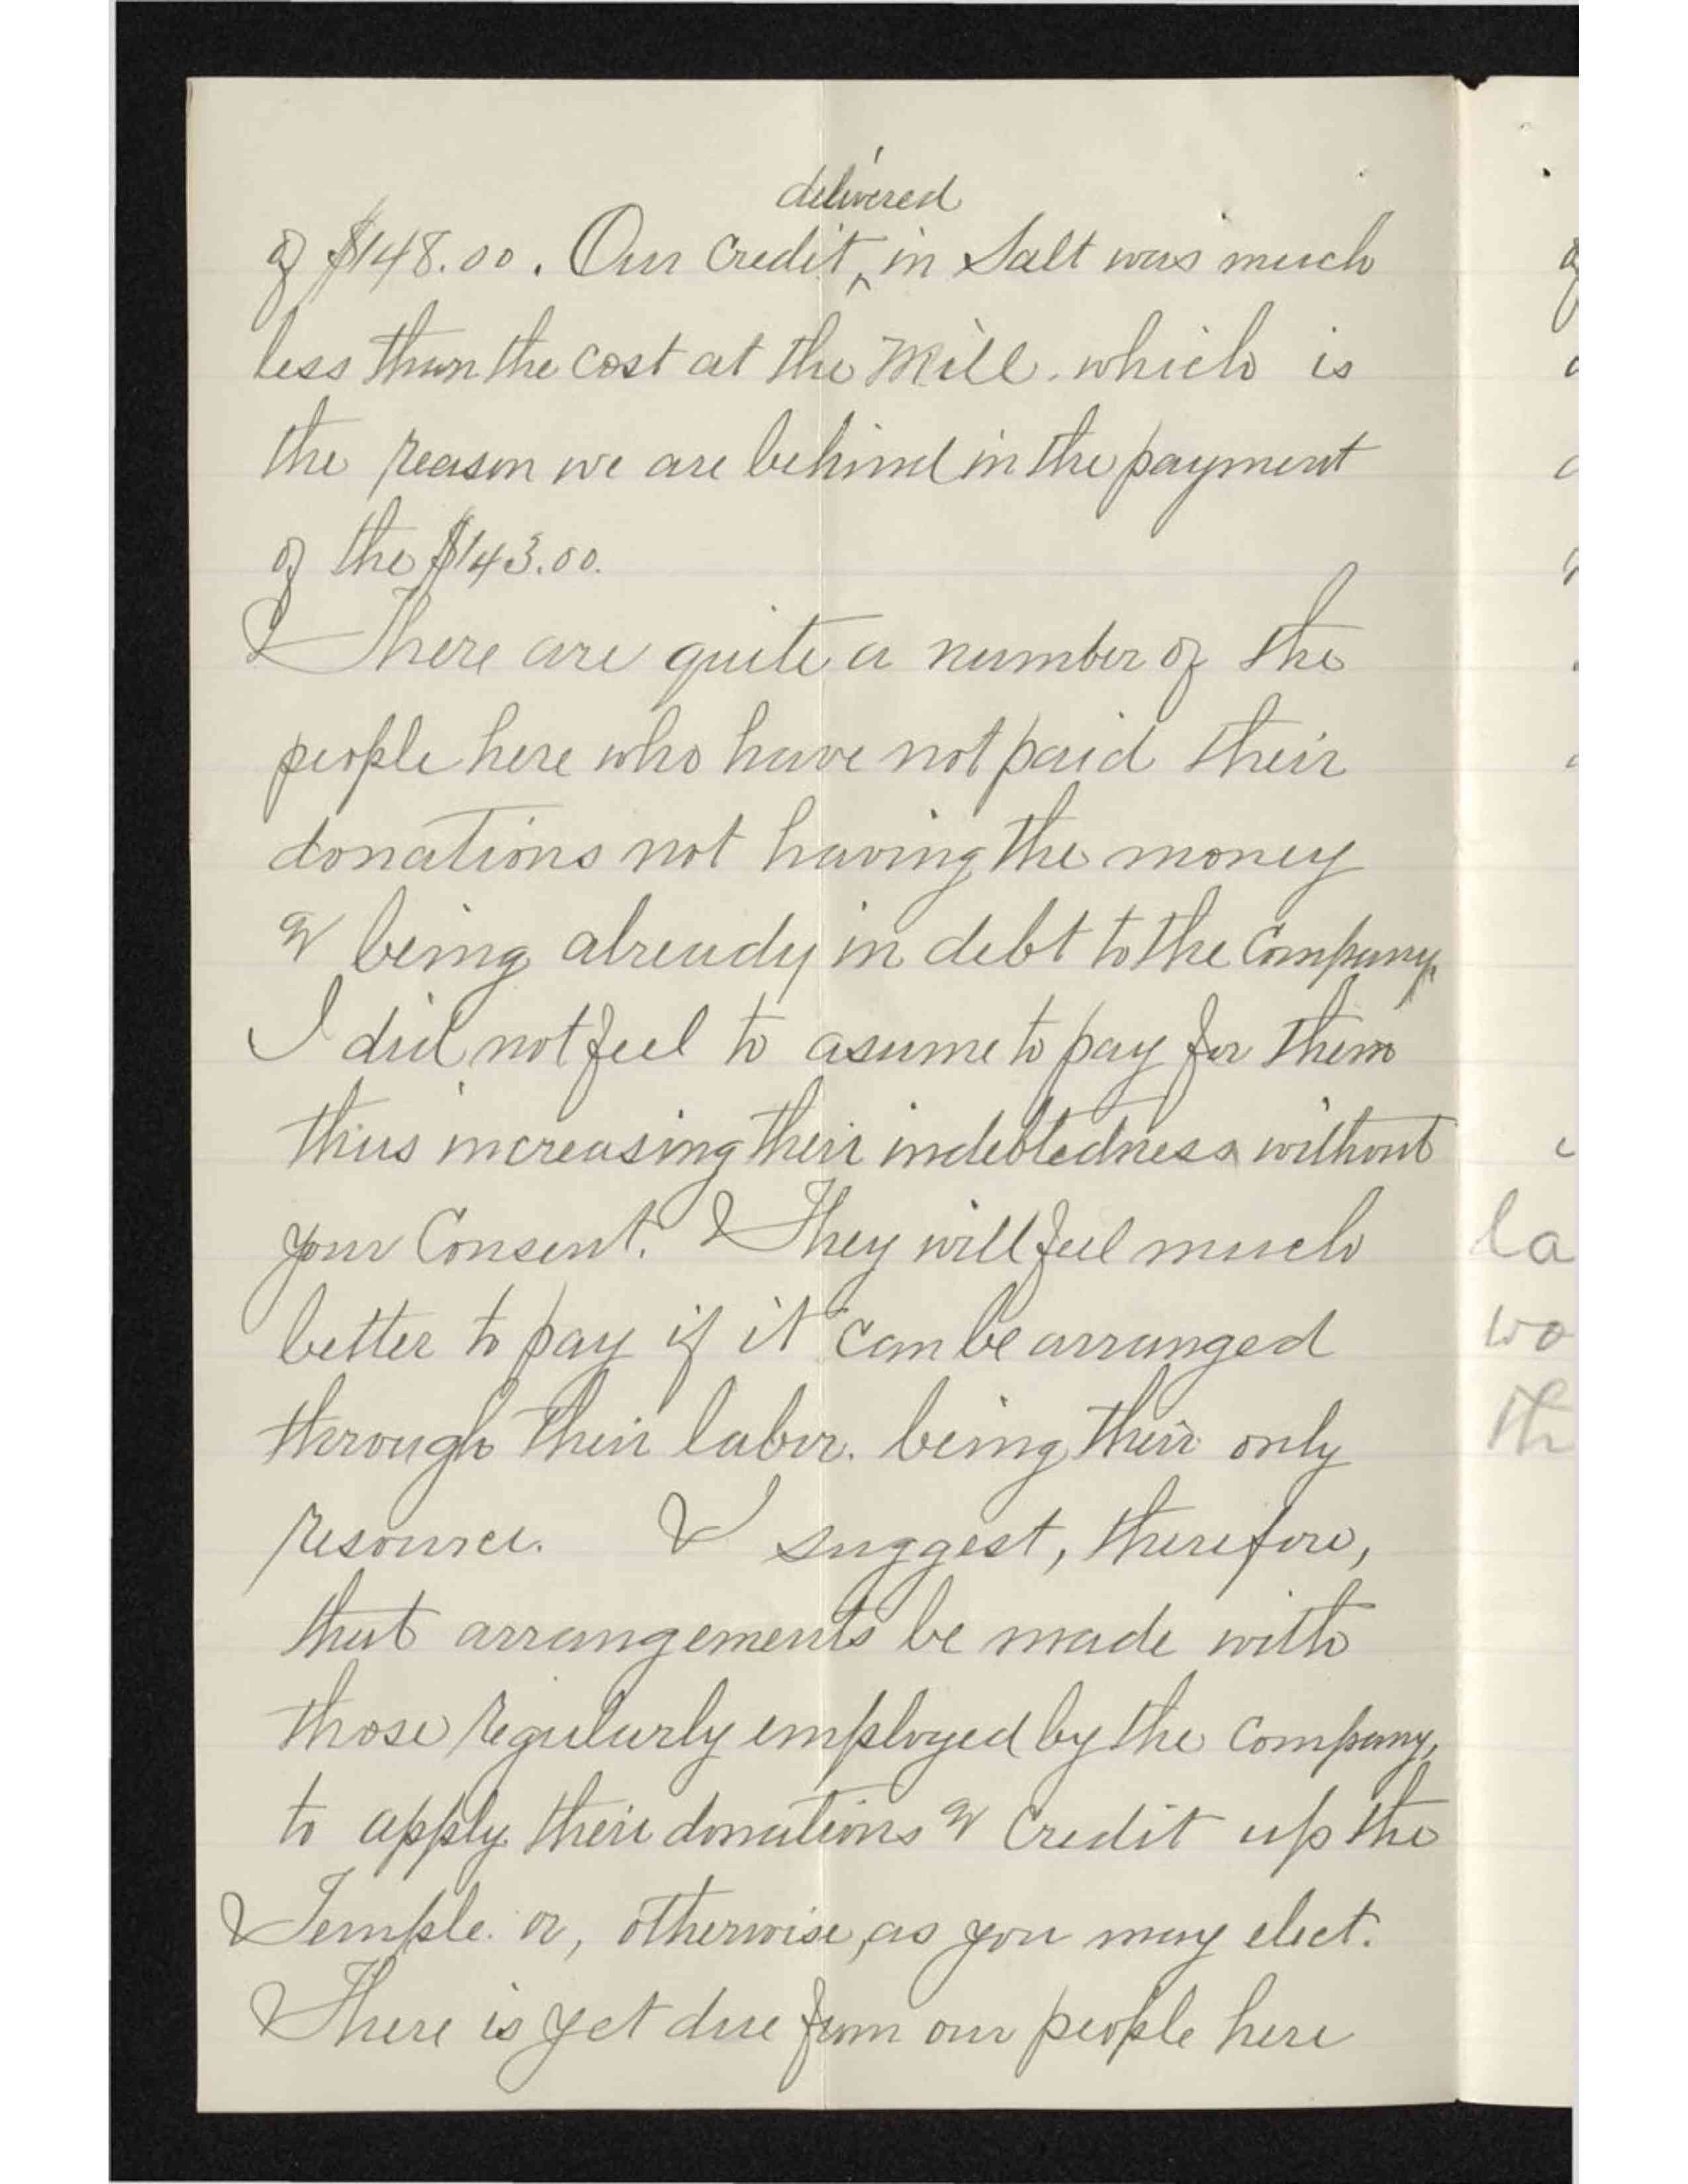 delivered
of $148.00. Our Credit ‸ in Salt was much
less than the cost at the Mill. which is
the reason we are behind in the payment
of the $143.00.
There are quite a number of the
people here who have not paid their
donations not having the money
& being already in debt to the Company.
I did not feel to asume to pay for them
thus increasing their indebtedness without
your Consent. They will feel much
better to pay if it can be arranged
through their labor. being their only
resource. I suggest, therefore,
that arrangements be made with
those regularly employed by the Company,
to apply their donations & Credit up the
Temple. or, otherwise, as you may elect.
There is yet due from our people here
la
wo
th